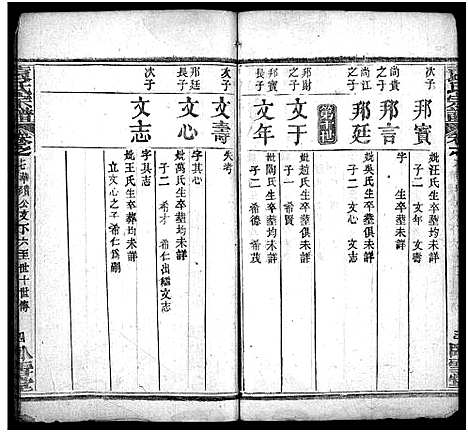 尚貴之子
邦賓
妣汪氏生卒塟均未詳
子二 文年 文壽
次子
邦言
尚江之子
邦廷
妣吳氏生卒塟俱未詳
子二 文心 文志
邦財之子
文于
妣趙氏生卒塟俱未詳
子一 希賢
邦賓長子
文年
妣陶氏生卒塟均未詳
子二 希德 希茂
次子
文壽
失考
邦廷長子
文心
字其心
妣萬氏生卒塟均未詳
子二 希才 希仁出繼文志
次子
文志
字其志
妣王氏生卒塟均未詳
立文心之子希仁爲嗣
氏宗譜
卷之七 華 公支下六至十世世傳